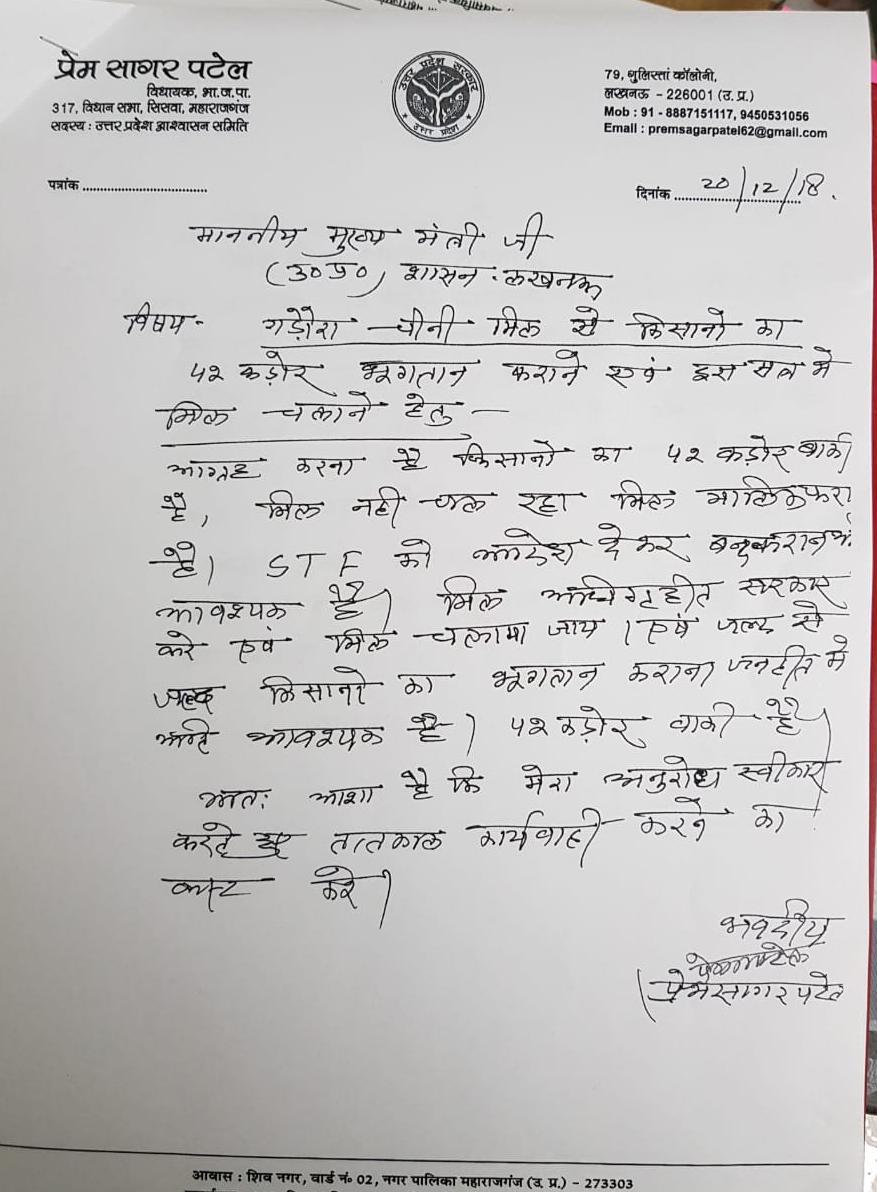 प्रेम सागर पटेल
विधायक, भा.ज.पा.
317, विधान सभा, सिसवा, महाराजगंज
सदस्य : उत्तर प्रदेश आश्वासन समिति
उत्तर प्रदेश सरकार
उत्तर प्रदेश
79, गुलिस्तां कॉलोनी,
लखनऊ - 226001 (उ. प्र.)
Mob : 91 - 8887151117, 9450531056
Email : premsagarpatel62@gmail.com
पत्रांक ..................................
दिनांक ....20/12/18.
माननीय मुख्य मंत्री जी
(उ0प्र0) शासन - लखनऊ
विषय - गड़ौरा चीनी मिल से किसानो का
५२ कड़ोर भूगतान कराने एवं इस सत्र मे
मिल चलाने हेतु -
आग्रह करना है किसानो का ५२ कड़ोर बाकी
है, मिल नही चल रहा मिल मालिक फरा
है। STF को आदेश दे कर
आवश्यक है। मिल अधिगृहीत सरकार
करे एवं मिल चलाया जाय। एवं जल्द से
जल्द किसानो का भूगतान कराना जनहीत मे
अति आवश्यक है। ५२ कड़ोर बाकी है।
अतः आशा है कि मेरा अनुरोध स्वीकार
करते हुए तातकाल कार्यवाही करने का
कष्ट करे।
भवदीय
(प्रेम सागर पटेल
आवास : शिव नगर, वार्ड नं० 02, नगर पालिका महाराजगंज (उ. प्र.) - 273303